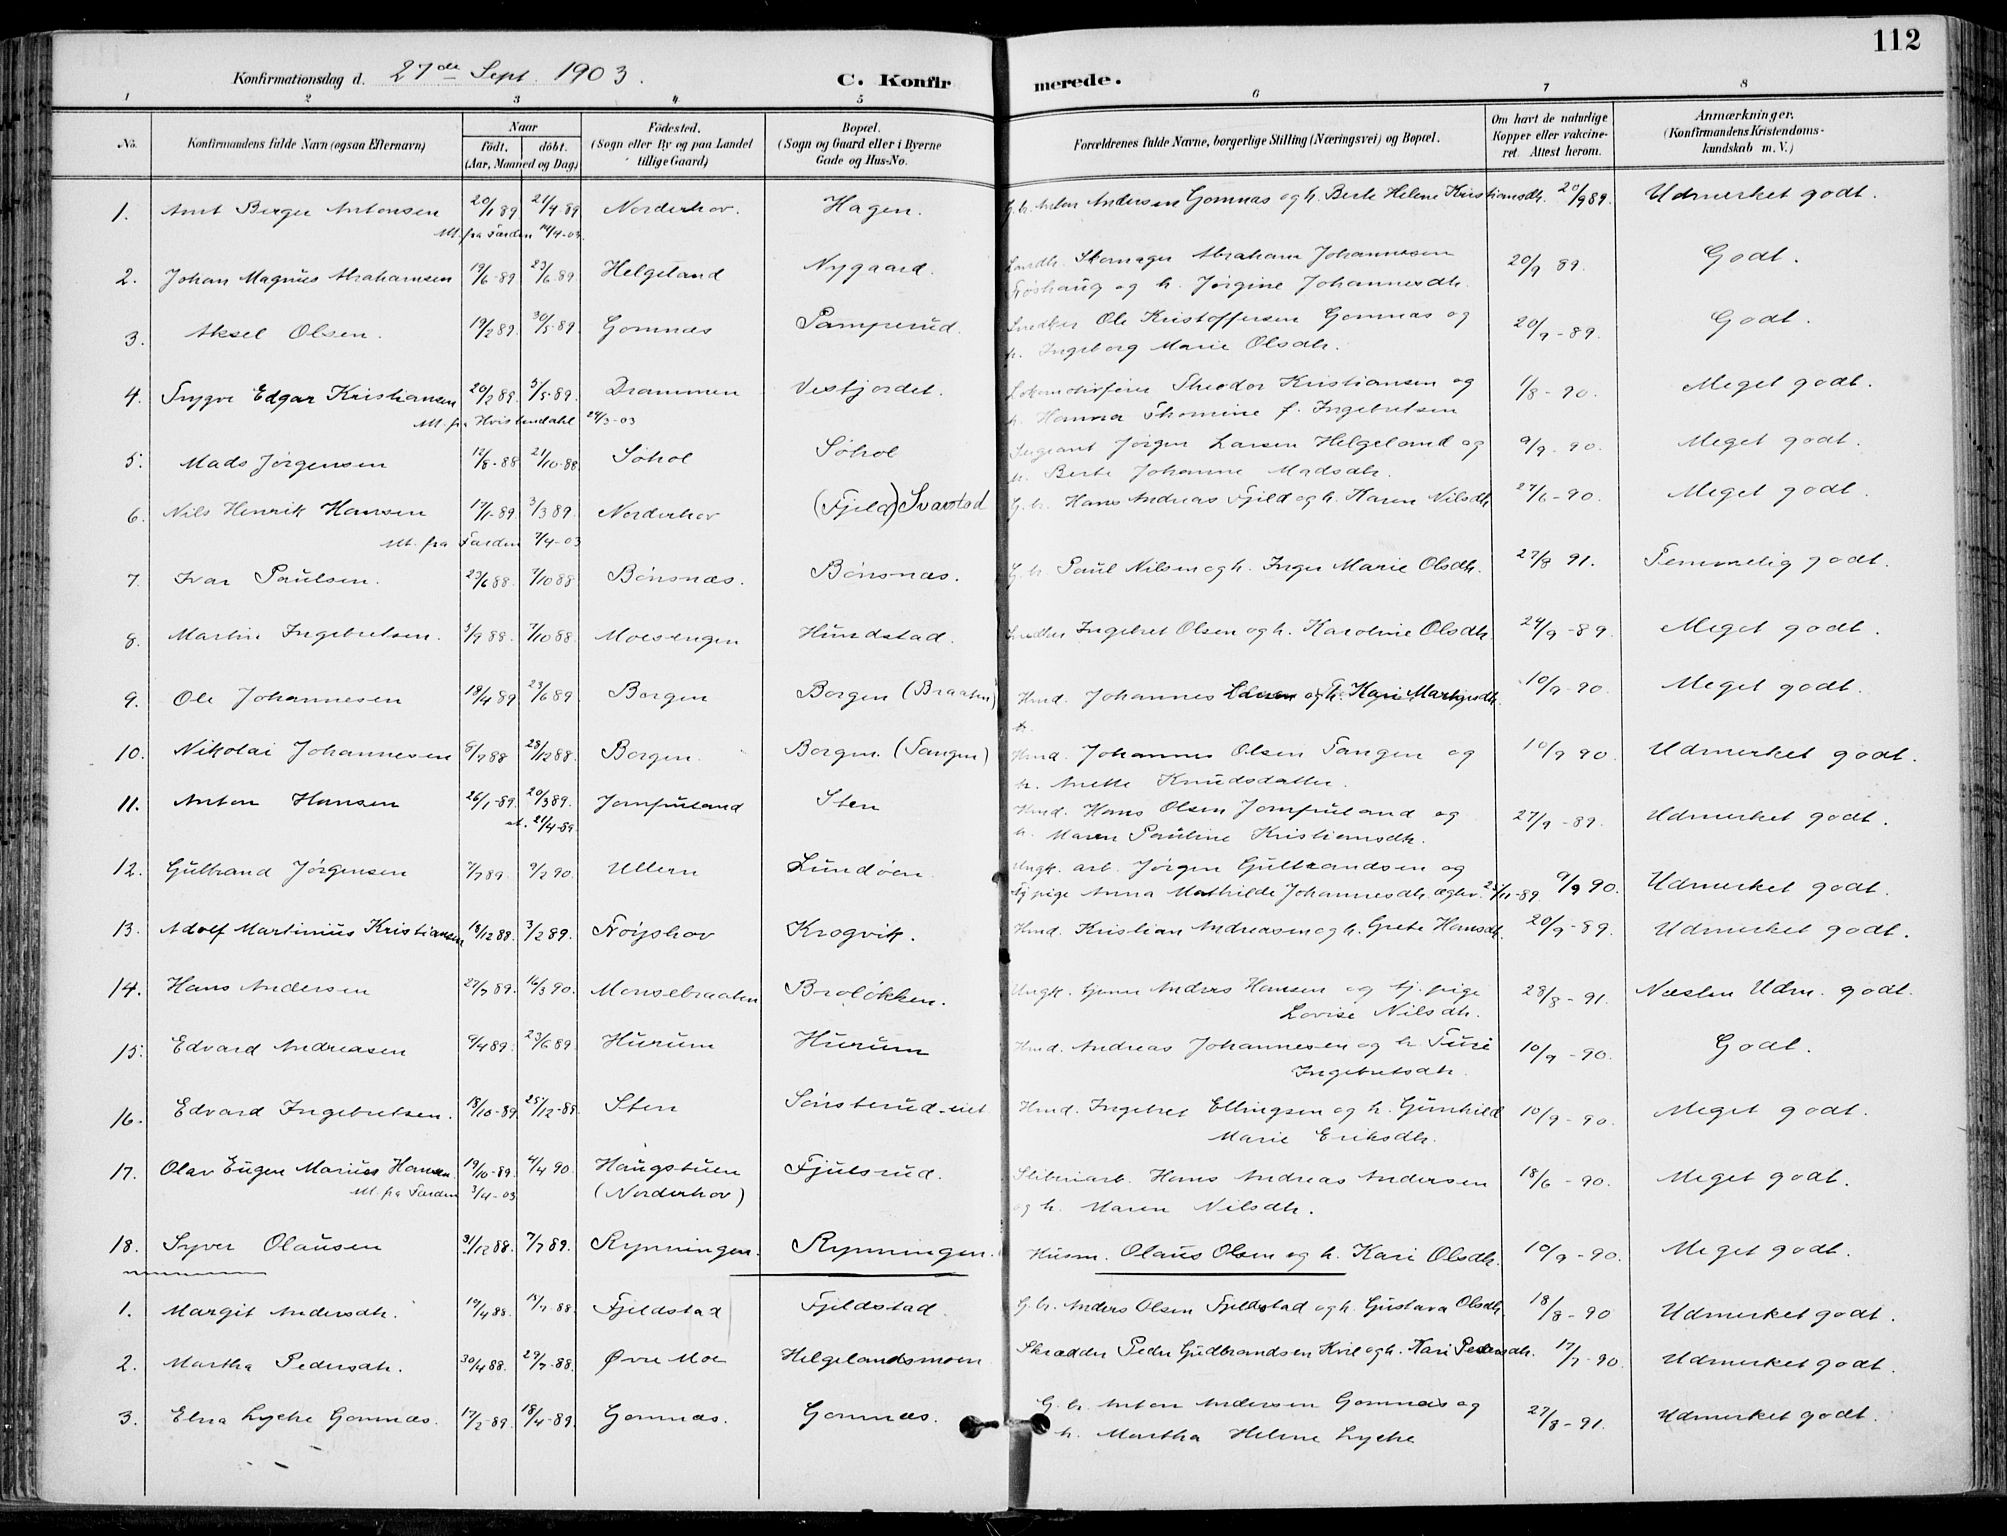 112
Konfirmationsdag d. 27de Sept. 1903. C. Konfir merede.
1 2 3 4 5 6 7 8
No. Konfirmandens fulde Navn (ogsaa Efternavn) Naar født. døbt. (Aar, Maaned og Dag) Fødested. (Sogn eller By og paa Landet tillige Gaard) Bopæl. (Sogn og Gaard eller i Byerne Gade og Hus-No. Forældrenes fulde Navne, borgerlige Stilling (Næringsvei) og Bopæl. Om havt de naturlige Kopper eller vakcineret. Attest herom. Anmærkninger. (Konfirmandens Kristendomskundskab m. V.)
1. Amt Berger Antonsen 20/1 89 21/4 89 Norderhov. Hagen. G.br. Anton Andersen Gomnæs og h. Berte Helene Kristiansdtr. 20/9 89. Udmerket godt.
Att. fra Farden 14/4-03
2. Johan Magnus Abrahamsen 19/6-89 23/6 89. Helgeland Nygaard. Skomager Abraham Johannesen 20/9 89. Godt.
Frøshaug og h. Jørgine Johannesdtr.
3. Aksel Olsen. 19/2 89. 30/5-89. Gomnæs Pamperud. Snedker Ole Kristoffersen Gomnæs og 20/9-89. Godt.
h. Ingeborg Marie Olsdtr.
4. Trygve Edgar Kristiansen 20/2 89. 5/5-89. Drammen Vesfjordet. Lokomotivfører Theodor Kristiansen og 1/8-90. Meget godt.
Att. fra Hvistendahl 24/3-03 h. Hanna Thomine f. Ingebretsen
5. Mads Jørgensen 12/8-88 21/10-88 Søhol Søhol Sergeant Jørgen Larsen Helgeland og 9/9-90. Meget godt.
h. Berte Johanne Madsdtr.
6. Nils Henrik Hansen 17/1-89. 3/3 89. Norderhov (Fjeld) Svarstad G.br. Hans Andreas Fjeld og h. Karen Nilsdtr. 27/6-90. Meget godt.
Att. fra Farden 7/4-03
7. Ivar Paulsen. 23/6 88. 7/10 88 Bønsnæs. Bønsnæs. G.br. Paul Nilsen og h. Inger Marie Olsdtr. 27/8 91. Temmelig godt.
8. Martin Ingebretsen. 3/9 88. 7/10 88. Moesengen Hundstad. Snedker Ingebret Olsen og h. Karoline Olsdtr. 24/9-89. Meget godt.
9. Ole Johannesen 18/4 89 23/6 89. Borgen Borgen (Braaten) Hmd. Johannes og h. Kari Martinsdtr. 10/9-90. Meget godt.
10. Nikolai Johannesen 8/7 88 28/12 88. Borgen. Borgen. (Tangen) Hmd. Johannes Olsen Tangen og 10/9 90. Udmerket godt.
h. Anette Knudsdatter.
11. Anton Hansen 26/1-89. 20/3 89. Jomfruland Sten Hmd. Hans Olsen Jomfruland og 27/9-89. Udmerket godt.
st. 21/4-89. h. Maren Pauline Kristiansdtr.
12. Gulbrand Jørgensen 7/7 89. 9/2 90. Ullern Lundøen. Ungk. arb. Jørgen Gulbrandsen og 9/9 90. Udmerket godt.
tj. pige Anna Mathilde Johannesdtr. ægtev. 25/11-89.
13. Adolf Martinius Kristiansen 18/12 88. 3/2 89. Frøyshov Krogvik. Hmd. Kristian Andreasen og h. Grete Hansdtr. 20/9-89. Udmerket godt.
14. Hans Andersen 27/7 89. 16/3 90. Monsebraaten Broløkken. Ungk. tjener Anders Hansen og tj. pige 28/8-91. Næsten Udm. godt.
Lovise Nilsdtr.
15. Edvard Andreasen 9/4 89. 23/6 89. Hurum Hurum Hmd. Andreas Johannesen og h. Turi 10/9-90. Godt.
Ingebretsdtr.
16. Edvard Ingebretsen. 18/10-89 25/12-89. Sten Sønsterud-eiet Hmd. Ingebret Ellingsen og h. Gunhild 10/9-90. Meget godt.
Marie Eriksdtr.
17. Olav Eugen Marius Hansen 19/10-89. 4/4 90. Haugstuen Fjulsrud. Sliberiarb. Hans Andreas Andersen 18/6-90. Meget godt.
Att. fra Farden 3/4-03 (Norderhov) og h. Maren Nilsdtr.
18. Syver Olausen 31/12 88. 7/7 89. Rynningen. Rynningen. Husm. Olaus Olsen og h. Kari Olsdtr. 10/9-90. Meget godt.
1. Margit Andersdtr. 19/4 88. 15/7-88. Fjeldstad Fjeldstad. G.br. Anders Olsen Fjeldstad og h. Gustava Olsdtr. 18/8-90 Udmerket godt.
2. Martha Pedersdtr. 30/4 88. 29/7-88. Øvre Moe Helgelandsmoen Skrædder Peder Gudbrandsen Kvil og h. Kari Pedersdtr. 17/7-90. Udmerket godt.
3. Elna Lyche Gomnæs. 17/2-89. 18/4-89. Gomnæs. Gomnæs. G.br. Anton Andersen Gomnæs og 27/8-91. Udmerket godt.
h. Martha Helene Lyche